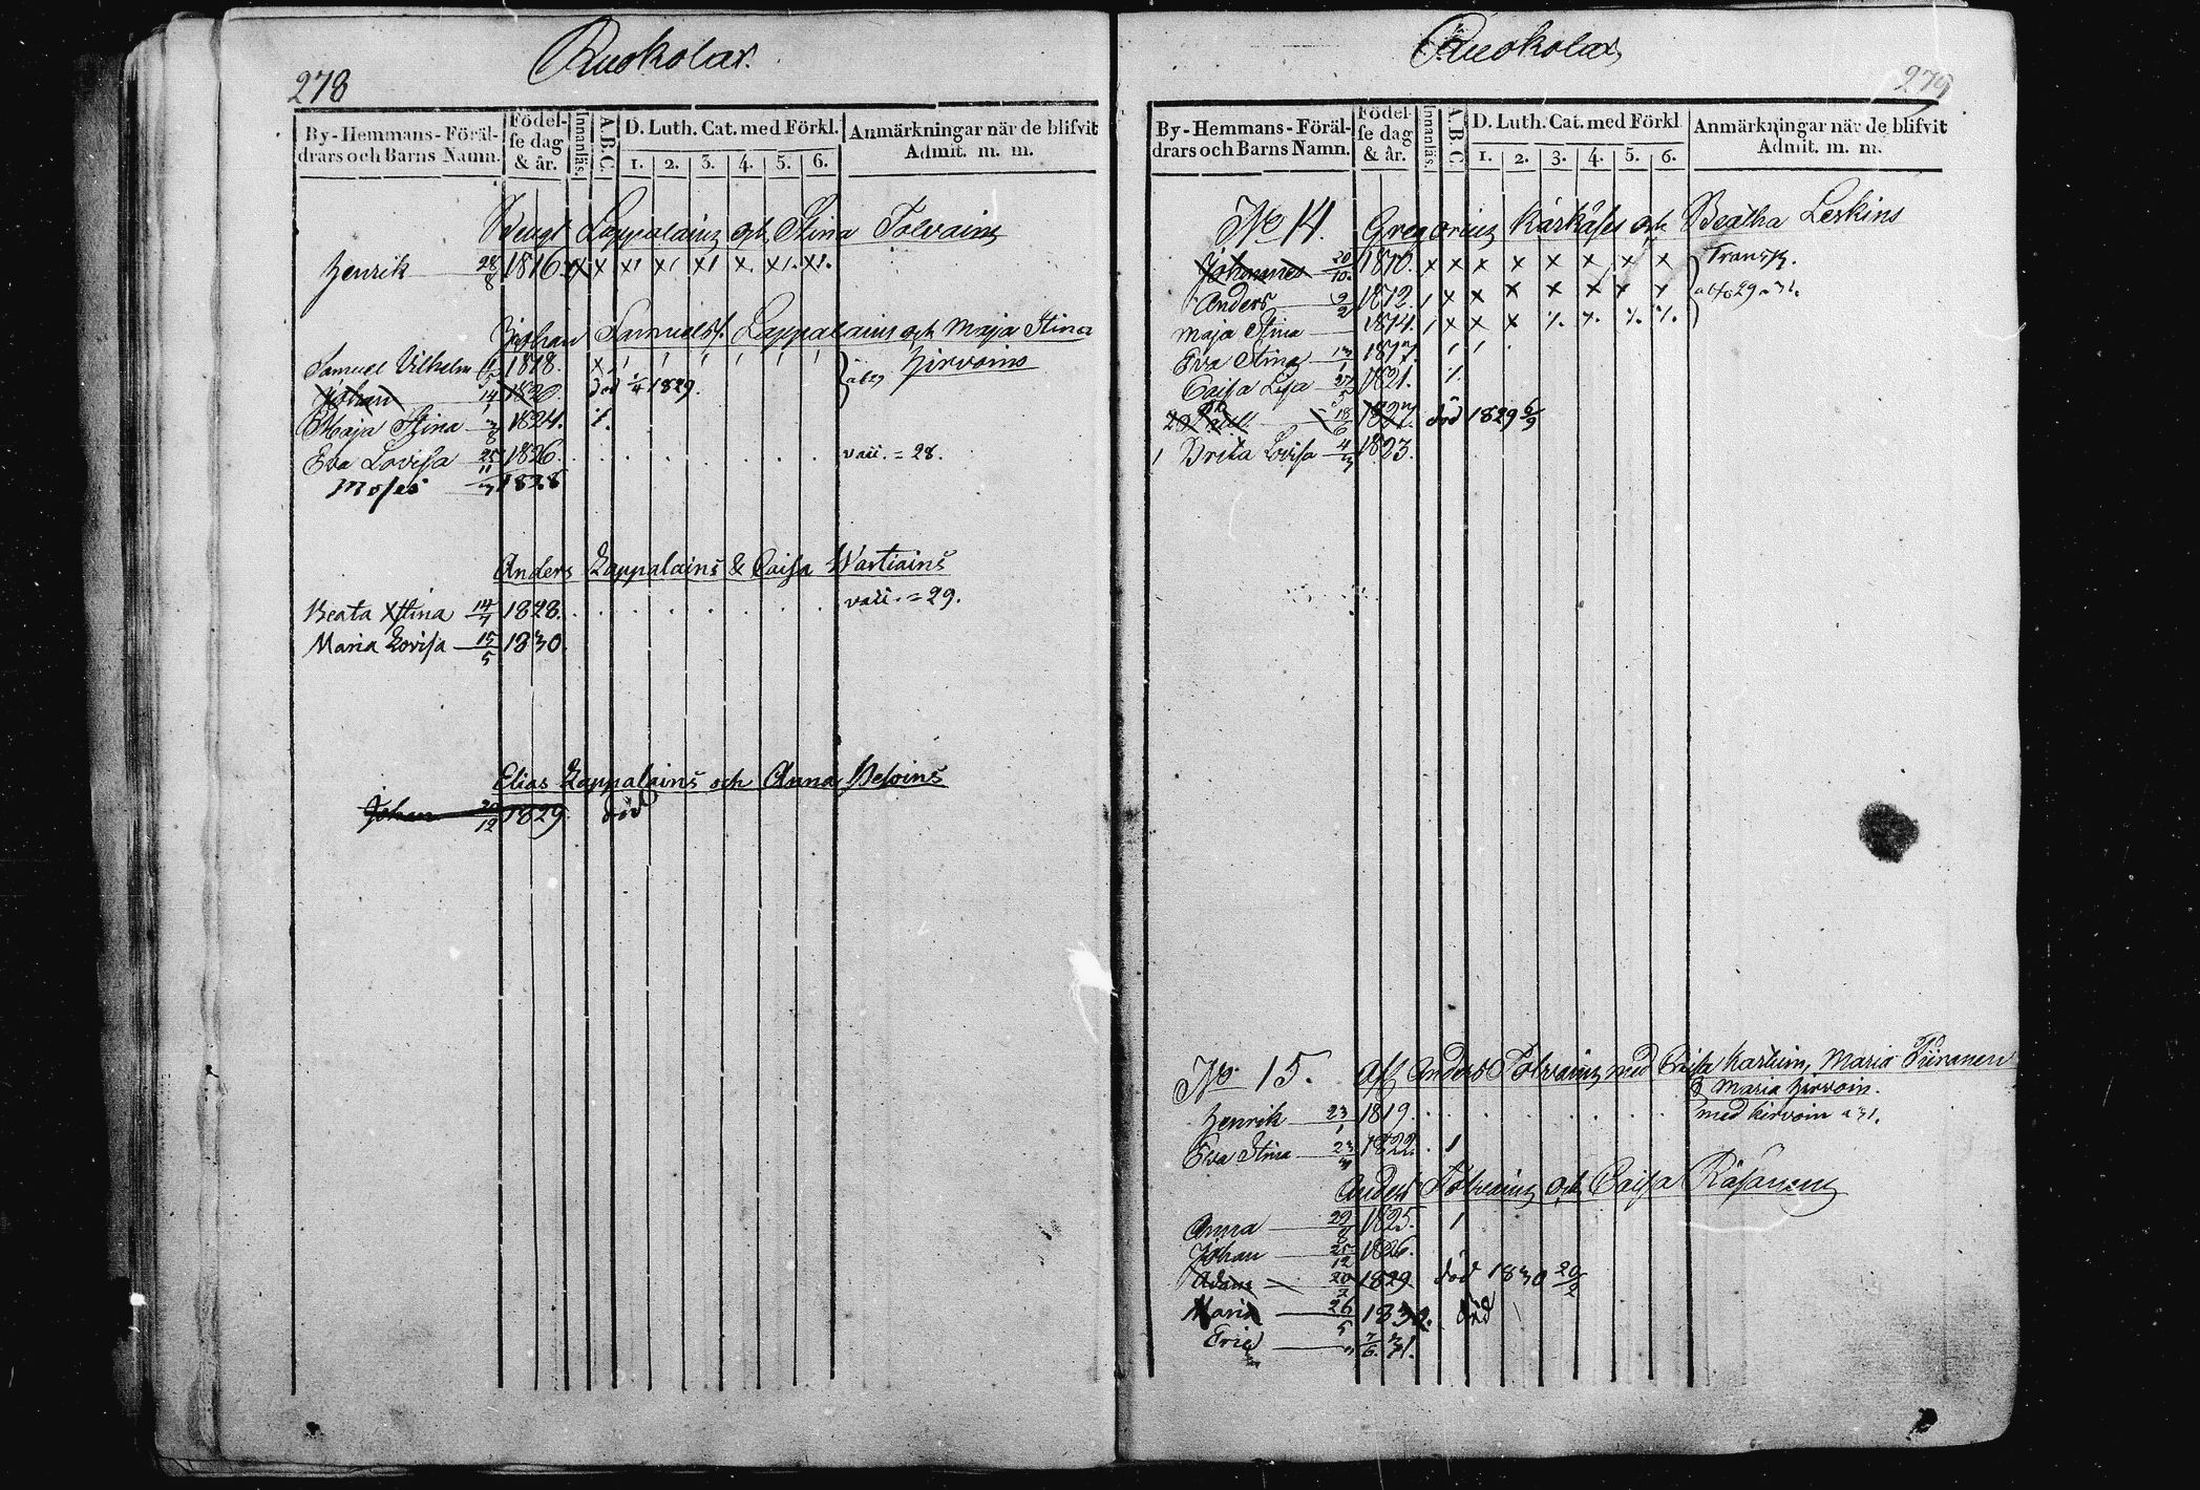 278
Ruokolax.
By-Hemmans-Föräl-
drars och Barns Namn.
Födel-
se dag
& år.
Innanläs.
A.B.C.
D. Luth. Cat. med Förkl.
1. 2. 3. 4. 5. 6.
Anmärkningar när de blifvit
Admit. m. m.
Bengt Lappalains och Stina Tolvains
Henrik 28/8 1816. x x x1 x1 x1 x. x1. x1.
Johan Samuelss. Lappalains och Maja Stina
Hirvoins
Samuel Vilhelm 1818. x
Johan 14/1 1820 död 1829.
Maja Stina 3/8 1824.
Eva Lovisa 25/11 1826. vacc. = 28.
Moses 1828
Anders Lappalains & Caisa Wartiains
Beata Stina 14/7 1828. vacc. = 29.
Maria Lovisa 15/5 1830.
Elias Lappalains och Anna Beloins
Johan 20/12 1829. död
Ruokolax
279
By-Hemmans-Föräl-
drars och Barns Namn.
Födel-
se dag
& år.
Innanläs.
A.B.C.
D. Luth. Cat. med Förkl
1. 2. 3. 4. 5. 6.
Anmärkningar när de blifvit
Admit. m. m.
No 14. Gregorius Kärkäses och Beatha Leskins
Johannes 20/10. 1810. x x x x x x x x Transp.
Anders 9/2 1812. 1 x x x x x x x
Maja Stina 1814. 1 x x x
Eva Stina 13/1 1817. 1 1
Caisa Lisa 27/5 1821.
18/6 1827. död 1829 6/9
1 Brita Lovisa 4/3 1823.
No 15. Afl. Anders Tolvains med Caisa Karhuin, Maria Piiranen
& Maria Hirvoin.
Henrik 23/1 1819. med Hirvoin a 31.
Eva Stina 23/3 1822. 1
Anders Tolvains och Caisa Räsänens
Anna 29/8 1825. 1
Johan 25/12 1826.
Adam 20/2 1829 död 1830 20/2
Maria 26/5 död
Eric 7/6. 31.